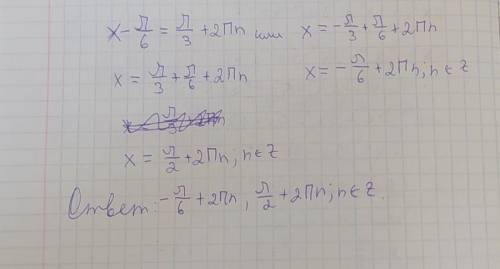 x - π/6 = π/3 + 2πn или x = -π/3 + π/6 + 2πn
x = π/3 + π/6 + 2πn x = -π/6 + 2πn; n ∈ Z
x = π/2 + 2πn; n ∈ Z
Ответ: -π/6 + 2πn, π/2 + 2πn; n ∈ Z.